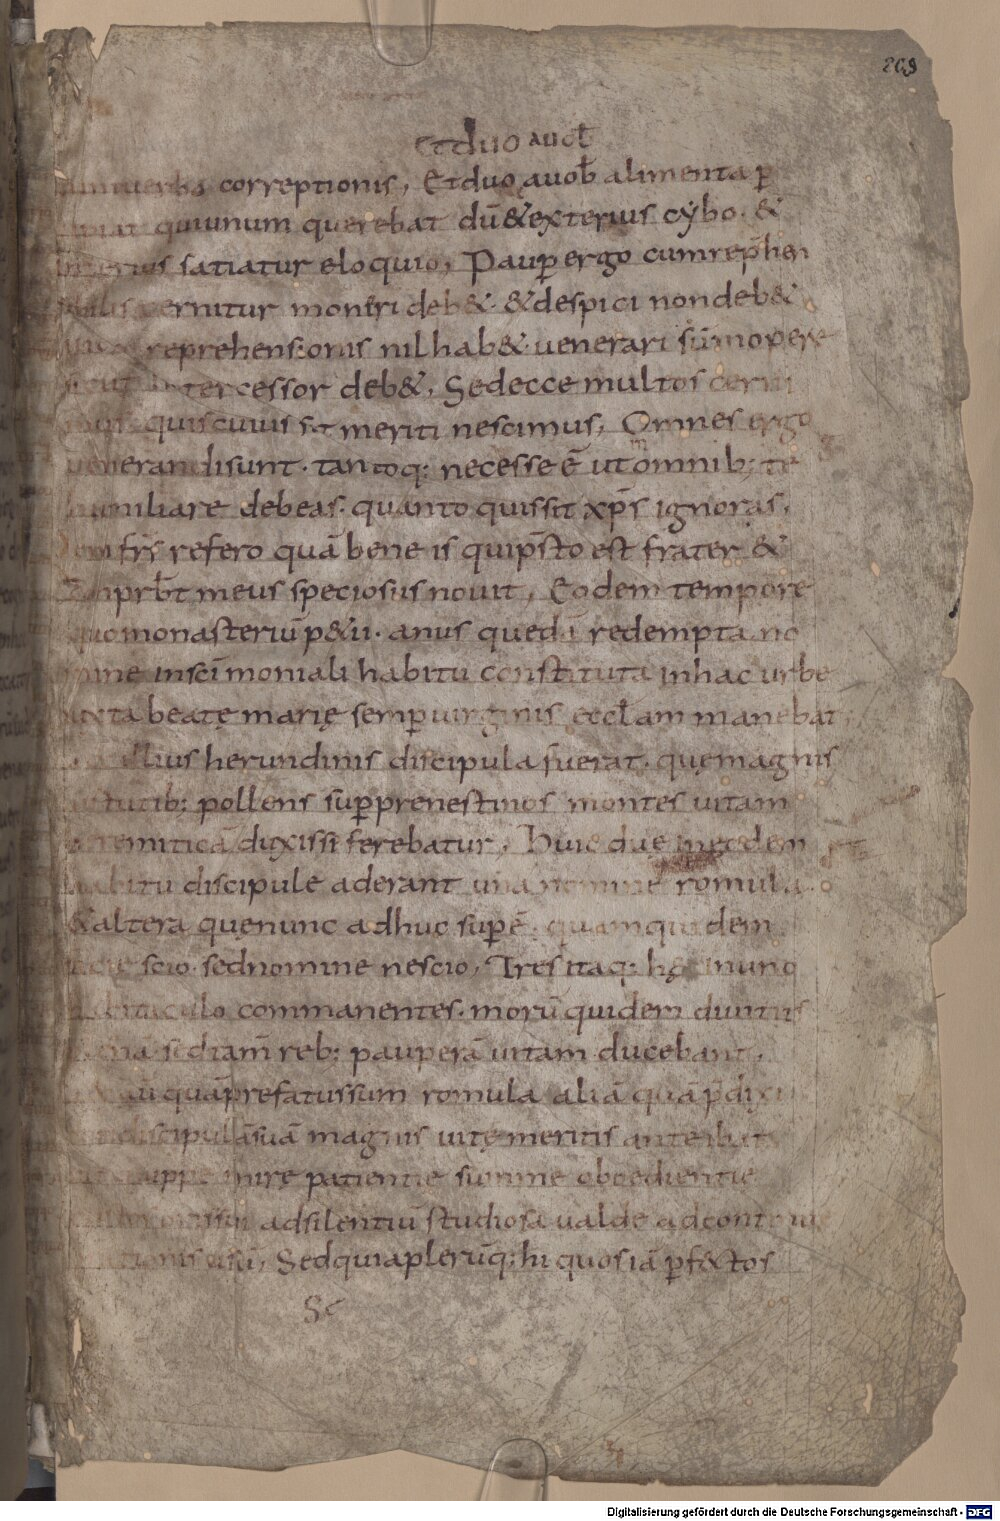 209
Et duo auob
correptionis, Et duo auob alimenta ꝑ
quiunum querebat dū & exterius cẏbo · &
satiatur eloquio, Pauꝑ ergo cum rep̄hen
cernitur moneri deb& · & despici non deb&
reprehensionis nil hab& · uenerari sūmopere
intercessor deb&, Sed ecce multos
quis cuius sit meriti nescimus, Omnes ergo
uenerandi sunt · tantoq: necesse ē ut omnib; te
humiliare debeas · quanto quis sit xp̄s ignoras,
frs̄ refero quā bene is qui p̄sto est frater &
conprb̄t meus speciosus nouit, Eodem tempore
quo monasteriū p&ii · anus quedā redempta no
mine in sc̄imoniali habitu constituta in hac urbe
iuxta beatę marię semꝑ uirginis eccl̄am manebat
illius herundinis discipula fuerat · quę magnis
uirtutib; pollens suꝑ prenestinos montes uitam
heremiticā duxisse ferebatur, Huic due in eodem
habitu discipule aderant una nomine romula
& altera quę nunc adhuc suꝑē · quam quidem
facie scio · sed nomine nescio, Tres itaq: hę in uno
habitaculo commanentes · morū quidem diuitiis
plenā · sed tam̄ reb; pauperā uitam ducebant,
quā prefatus sum romula aliā quā p̄dixi
condiscipulā suā magnis uitę meritis anteibat
mirę patientię summe oboedientie
ad silentiū studiosa ualde ad continue
orationis usū, Sed quia plerūq: hi quos iā ꝑf&tos
Se
Digitalisierung gefördert durch die Deutsche Forschungsgemeinschaft - DFG